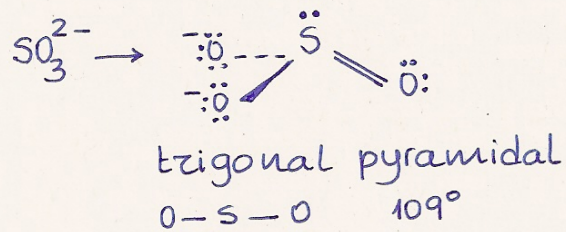 SO₃²⁻ → ⁻:Ö: S Ö:
⁻:Ö:
trigonal pyramidal
O – S – O 109°